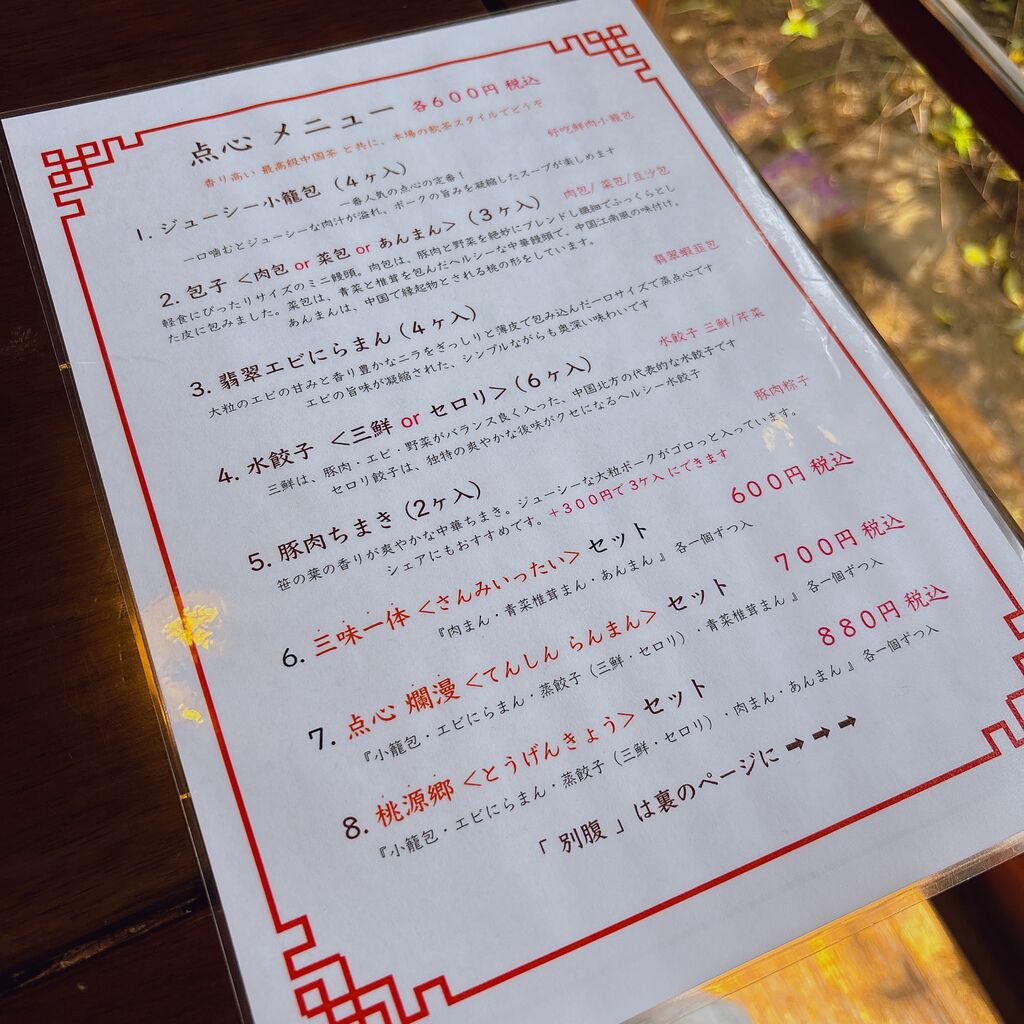 点心 メニュー 各600円 税込
香り高い 最高級中国茶 と共に、本場の飲茶スタイルでどうぞ
1. ジューシー小籠包 (4ヶ入) 好吃鮮肉小籠包
一番人気の点心の定番!
一口噛むとジューシーな肉汁が溢れ、ポークの旨みを凝縮したスープが楽しめます
2. 包子 <肉包 or 菜包 or あんまん> (3ヶ入) 肉包/菜包/豆沙包
軽食にぴったりサイズのミニ饅頭。肉包は、豚肉と野菜を絶妙にブレンドし繊細でふっくらとし
た皮に包みました。菜包は、青菜と椎茸を包んだヘルシーな中華饅頭で、中国江南風の味付け。
あんまんは、中国で縁起物とされる桃の形をしています。
3. 翡翠エビにらまん (4ヶ入) 翡翠蝦韮包
大粒のエビの甘みと香り豊かなニラをぎっしりと薄皮で包み込んだ一口サイズで蒸点心です
エビの旨味が凝縮された、シンプルながらも奥深い味わいです
4. 水餃子 <三鮮 or セロリ> (6ヶ入) 水餃子 三鮮/芹菜
三鮮は、豚肉・エビ・野菜がバランス良く入った、中国北方の代表的な水餃子です
セロリ餃子は、独特の爽やかな後味がクセになるヘルシー水餃子
5. 豚肉ちまき (2ヶ入) 豚肉粽子
笹の葉の香りが爽やかな中華ちまき。ジューシーな大粒ポークがゴロっと入っています。
シェアにもおすすめです。+300円で3ケ入 にできます
6. 三味一体 <さんみいったい> セット 600円 税込
『肉まん・青菜椎茸まん・あんまん 』 各一個ずつ入
7. 点心 爛漫 <てんしん らんまん> セット 700円 税込
『小籠包・エビにらまん・蒸餃子 (三鮮・セロリ) ・青菜椎茸まん 』 各一個ずつ入
8. 桃源郷 <とうげんきょう> セット 880円 税込
『小籠包・エビにらまん・蒸餃子 (三鮮・セロリ) ・肉まん・あんまん 』 各一個ずつ入
「 別腹 」は裏のページに ➡ ➡ ➡